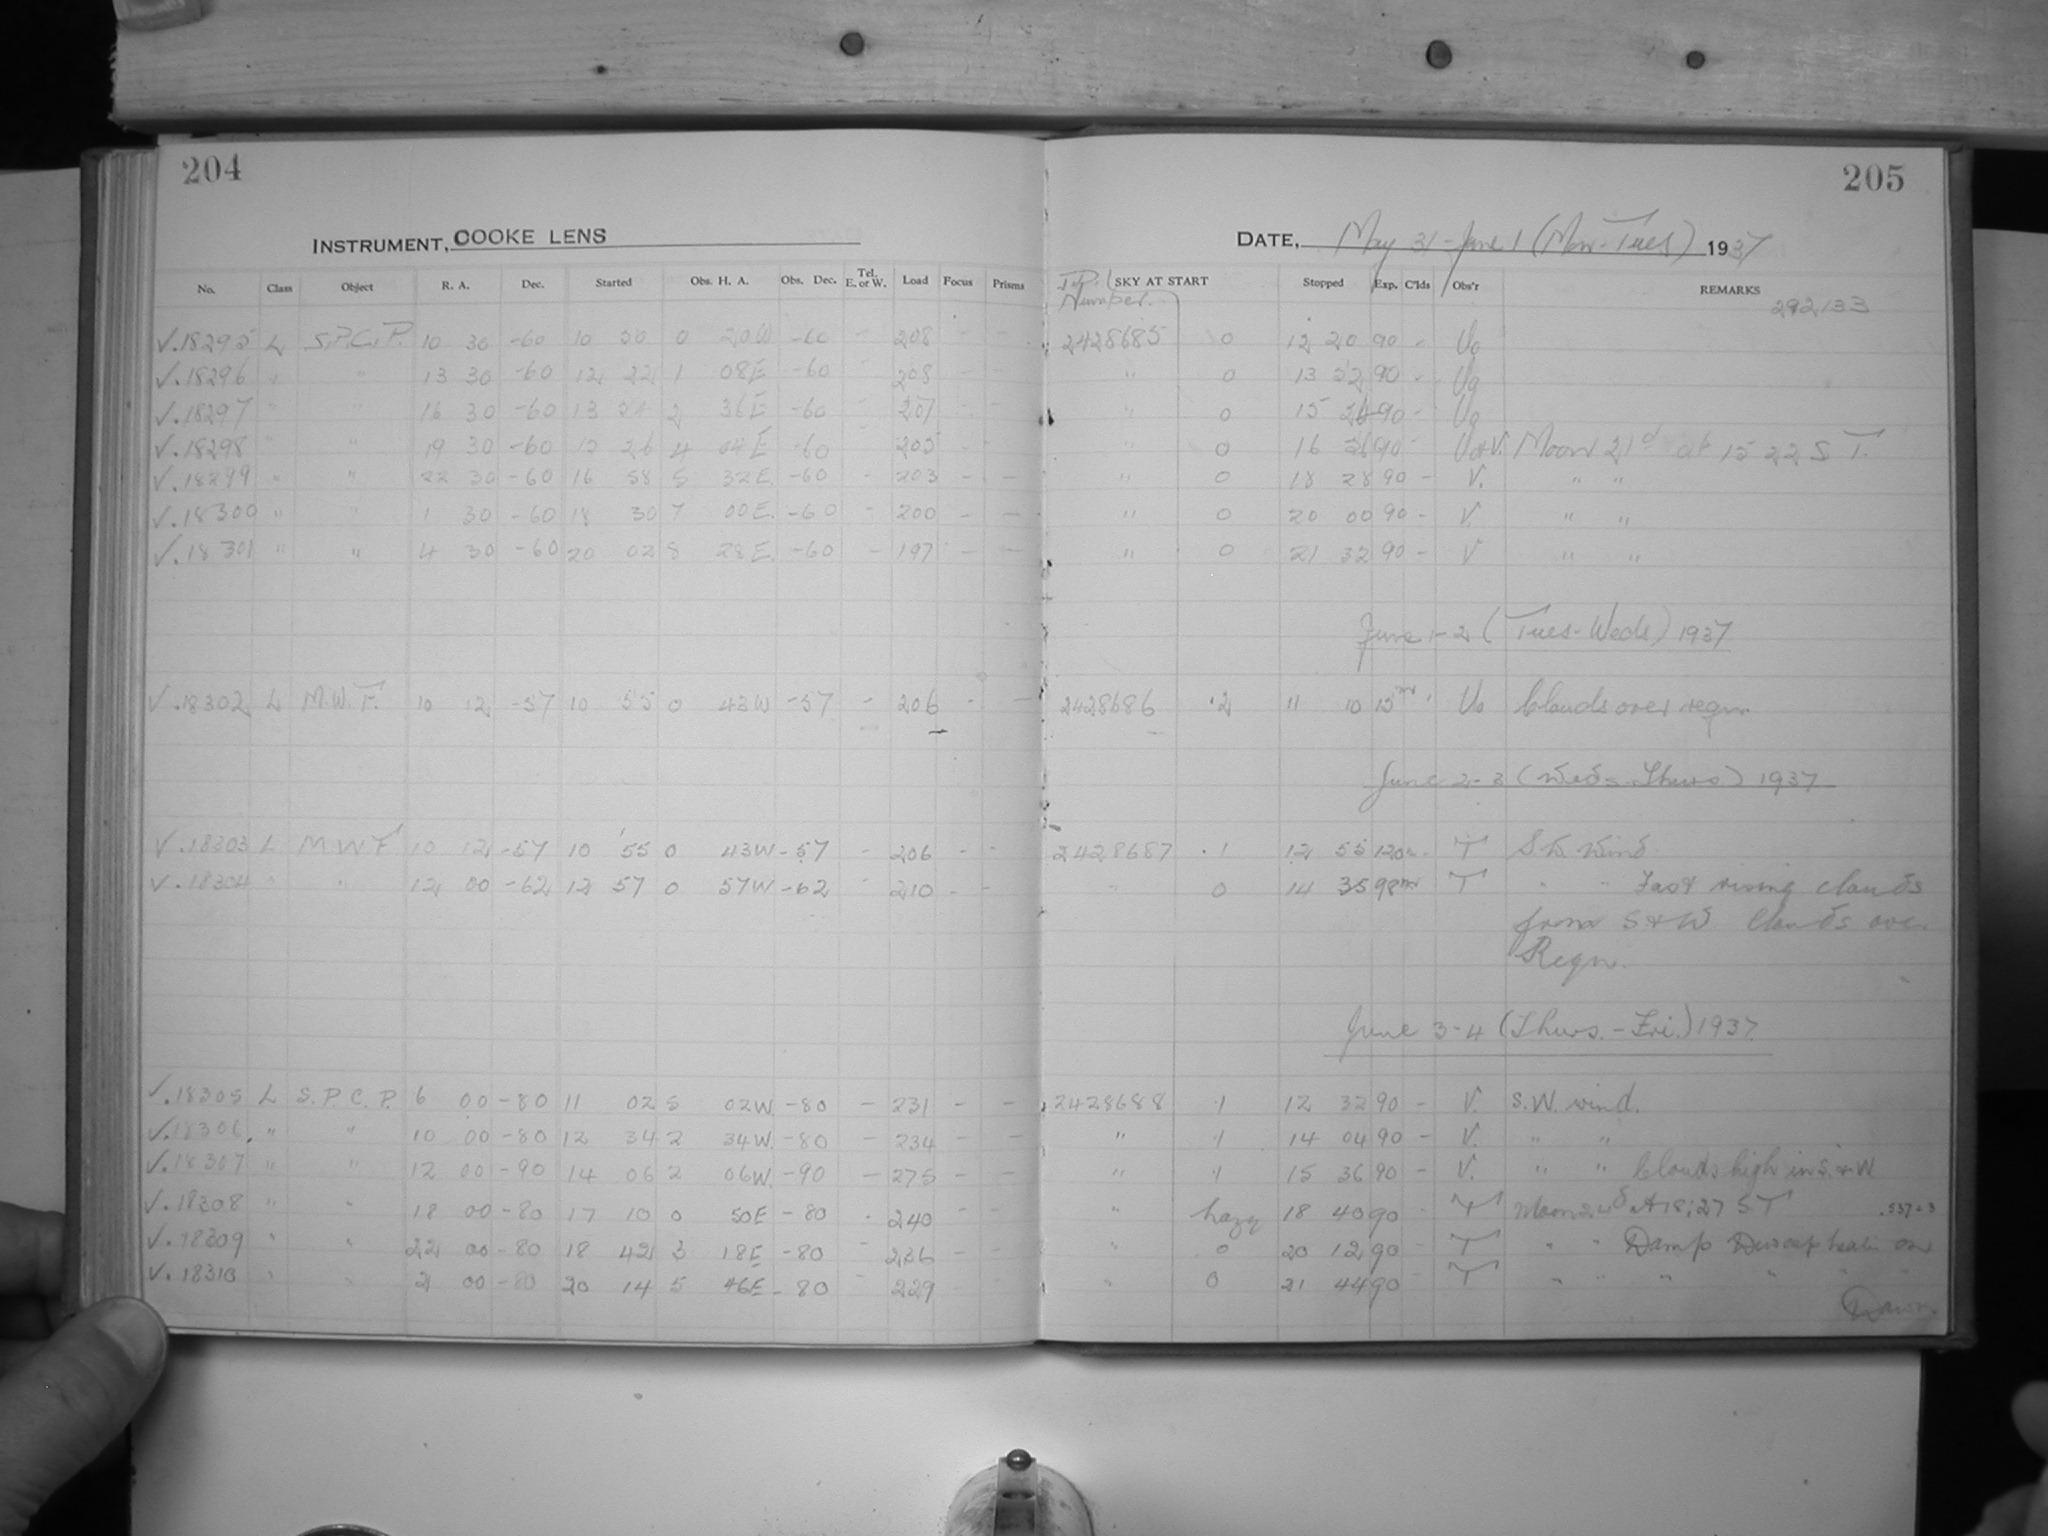 204
205
INSTRUMENT, COOKE LENS
DATE, May 31 - June 1 (Mon-Tues) 1937
No. Class Object R. A. Dec. Started Obs. H. A. Obs. Dec. Tel. E. or W. Load Focus Prisms J.D. Number. SKY AT START Stopped Exp. C'lds Obs'r REMARKS
292,133
✓.18295 L S.P.C.P. 10 30 -60 10 50 0 20W -60 - 208 - - 2428685 0 12 20 90 -
✓.18296 " " 13 30 -60 12 22 1 08E -60 - 208 - - " 0 13 52 90 -
✓.18297 " " 16 30 -60 13 54 2 36E -60 - 207 - - " 0 15 24 90 -
✓.18298 " " 19 30 -60 15 26 4 04E -60 - 205 - - " 0 16 56 90 - Moon 21d at 15 22 S T.
✓.18299 " " 22 30 -60 16 58 5 32E. -60 - 203 - - " 0 18 28 90 - V. " "
✓.18300 " " 1 30 -60 18 30 7 00E. -60 - 200 - - " 0 20 00 90 - V. " "
✓.18301 " " 4 30 -60 20 02 8 28E. -60 - 197 - - " 0 21 32 90 - V " "
June 1-2 (Tues-Weds) 1937
✓.18302 L M.W.F. 10 12 -57 10 55 0 43W -57 - 206 - - 2428686 .2 11 10 15m Clouds over regn
June 2-3 (Weds-Thurs) 1937
✓.18303 L M W F 10 12 -57 10 55 0 43W -57 - 206 - - 2428687 .1 12 55 120 - T wind
✓.18304 " " 12 00 -62 12 57 0 57W -62 - 210 - - " 0 14 35 98m T " " Fast rising clouds
from S & W. Clouds over
Regn.
June 3-4 (Thurs.-Fri.) 1937.
✓.18305 L S.P.C.P. 6 00 -80 11 02 5 02W. -80 - 231 - - 2428688 .1 12 32 90 - V. S.W. wind.
✓.18306. " " 10 00 -80 12 34 2 34W. -80 - 234 - - " .1 14 04 90 - V. " "
✓.18307 " " 12 00 -90 14 06 2 06W. -90 - 275 - - " .1 15 36 90 - V. " " Clouds high in S. & W
✓.18308 " " 18 00 -80 17 10 0 50E -80 - 240 - - " hazy 18 40 90 - T Moon 24d at 18:27 S T .537-3
✓.18309 " " 22 00 -80 18 42 3 18E -80 - 236 - - " 0 20 12 90 - T " " Damp Dewcap heater on
✓.18310 " " 2 00 -80 20 14 5 46E -80 - 229 - - " 0 21 44 90 - T " " " " "
Dawn